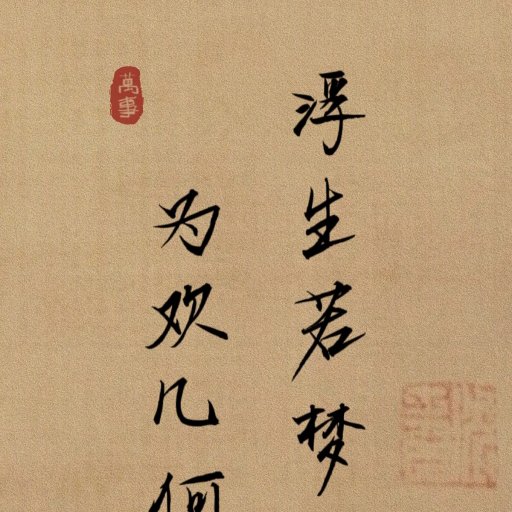 浮生若梦
为欢几何
萬事